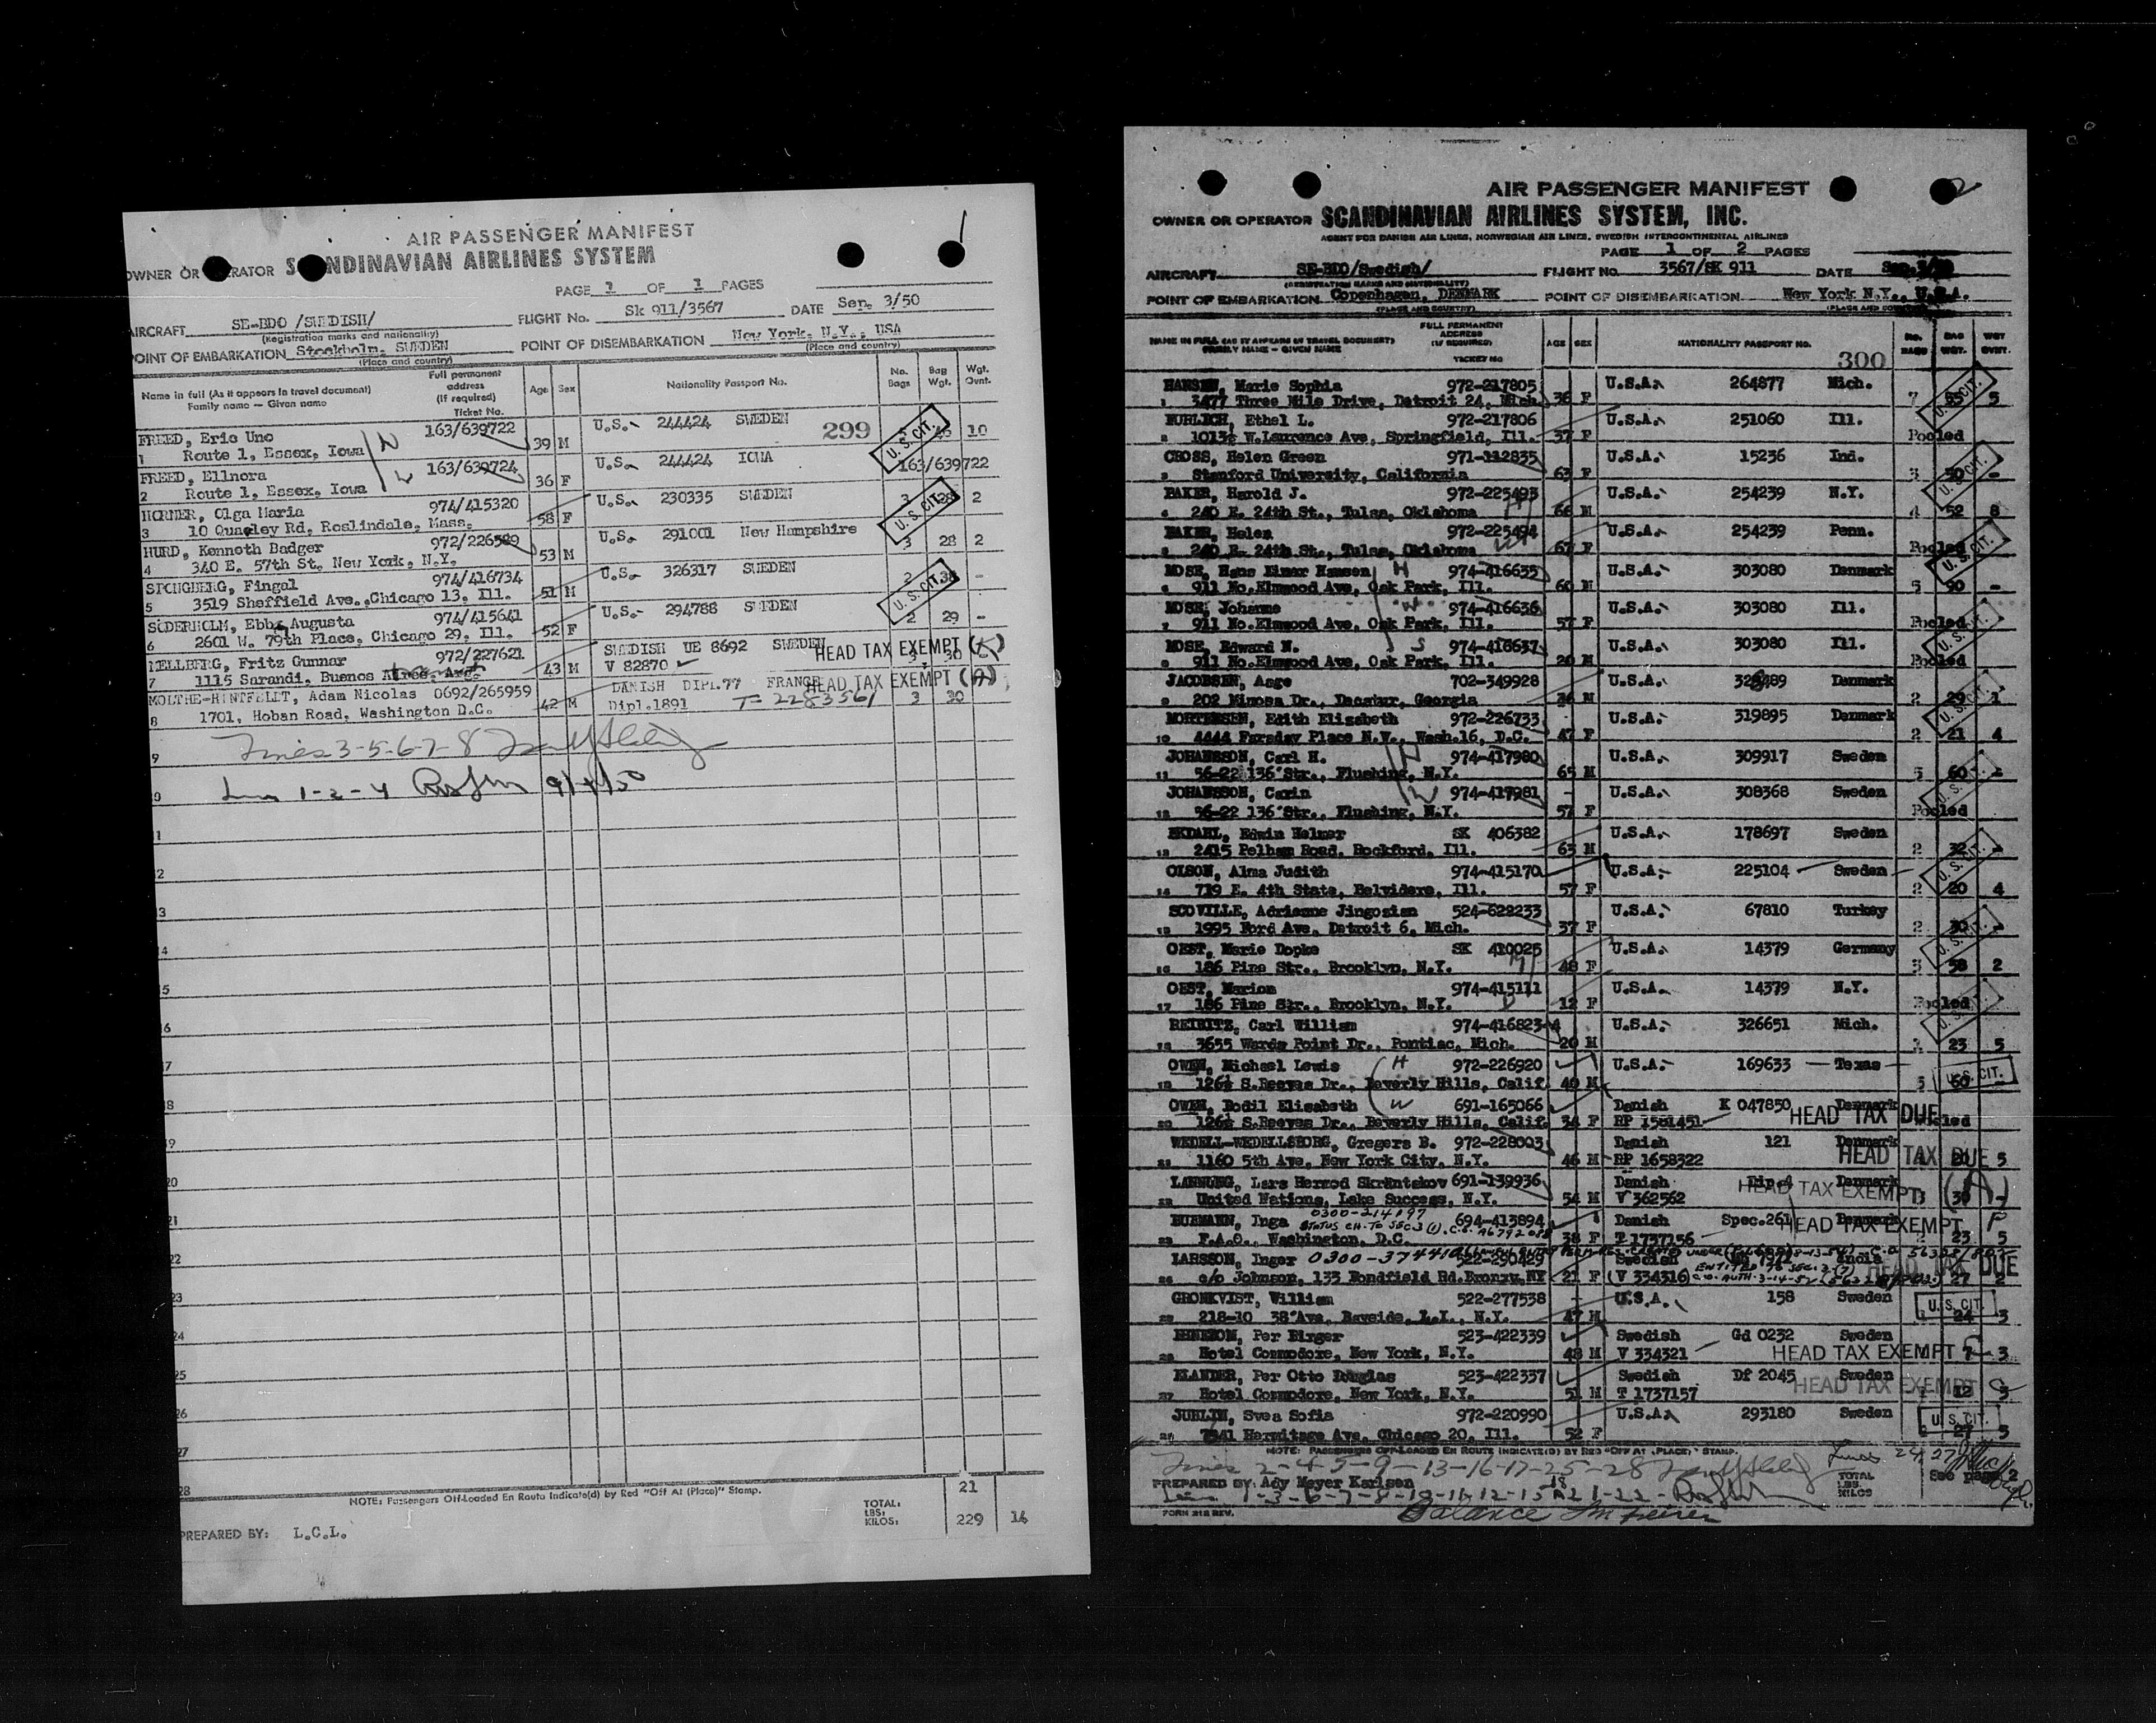 AIR PASSENGER MANIFEST
OWNER OR OPERATOR SCANDINAVIAN AIRLINES SYSTEM
PAGE 1 OF 1 PAGES
AIRCRAFT SE-BDO /SWEDISH/ FLIGHT No. Sk 911/3567 DATE Sep. 3/50
(Registration marks and nationality)
POINT OF EMBARKATION Stockholm, SWEDEN POINT OF DISEMBARKATION New York, N.Y., USA
(Place and country) (Place and country)
Name in full (As it appears in travel document) Family name — Given name Full permanent address (If required) Ticket No. Age Sex Nationality Passport No. No. Bags Bag Wgt. Wgt. Ovnt.
299
FREED, Eric Uno 163/639722 39 M U.S. 244424 SWEDEN U.S. CIT. 10
1 Route 1, Essex, Iowa
FREED, Ellnora 163/639724 36 F U.S. 244424 IOWA 163/639722
2 Route 1, Essex, Iowa
HORNER, Olga Maria 974/415320 58 F U.S. 230335 SWEDEN 3 28 2 U.S. CIT.
3 10 Quagley Rd, Roslindale, Mass.
HURD, Kenneth Badger 972/226589 53 M U.S. 291001 New Hampshire 3 28 2
4 340 E. 57th St, New York, N.Y.
SPONGBERG, Fingal 974/416734 51 M U.S. 326317 SWEDEN 2 - U.S. CIT.
5 3519 Sheffield Ave., Chicago 13, Ill.
SÖDERHOLM, Ebba Augusta 974/415641 52 F U.S. 294788 SWEDEN 2 29 -
6 2601 W. 79th Place, Chicago 29, Ill.
MELLBERG, Fritz Gunnar 972/227621 43 M SWEDISH UE 8692 SWEDEN HEAD TAX EXEMPT 3 30
7 1115 Sarandi, Buenos Aires, Arg. V 82870
MOLTHE-HINTFELDT, Adam Nicolas 0692/265959 42 M DANISH DIPL.77 FRANCE HEAD TAX EXEMPT (A)
8 1701, Hoban Road, Washington D.C. Dipl.1891 T-2283561 3 30
Lines 3-5-6-7-8
9
1-2-4 9/4/50
NOTE: Passengers Off-Loaded En Route Indicate(d) by Red "Off At (Place)" Stamp.
21
TOTAL: LBS: KILOS: 229 14
PREPARED BY: L.C.L.
AIR PASSENGER MANIFEST
2
OWNER OR OPERATOR SCANDINAVIAN AIRLINES SYSTEM, INC.
AGENT FOR DANISH AIR LINES, NORWEGIAN AIR LINES, SWEDISH INTERCONTINENTAL AIRLINES
PAGE 1 OF 2 PAGES
AIRCRAFT SE-BDO/Swedish/ FLIGHT NO. 3567/SK 911 DATE Sep.3/50
(REGISTRATION MARKS AND NATIONALITY)
POINT OF EMBARKATION Copenhagen, DENMARK POINT OF DISEMBARKATION New York N.Y., U.S.A.
(PLACE AND COUNTRY) (PLACE AND COUNTRY)
NAME IN FULL (AS IT APPEARS IN TRAVEL DOCUMENT) FAMILY NAME - GIVEN NAME FULL PERMANENT ADDRESS (IF REQUIRED) TICKET NO AGE SEX NATIONALITY PASSPORT NO. NO. BAGS BAG WGT. WGT OVNT.
300
HANSEN, Marie Sophia 972-217805 36 F U.S.A. 264877 Mich.
1 3477 Three Mile Drive, Detroit 24, Mich. 7 5
Ethel L. 972-217806 37 F U.S.A. 251060 Ill.
2 1013½ W.Laurence Ave, Springfield, Ill. Pooled
CROSS, Helen Green 971-112835 63 F U.S.A. 15236 Ind.
3 Stanford University, California
BAKER, Harold J. 972-225493 66 M U.S.A. 254239 N.Y.
4 240 E. 24th St., Tulsa, Oklahoma 4 52 8
BAKER, Helen 972-225494 67 F U.S.A. 254239 Penn.
5 240 E. 24th St., Tulsa, Oklahoma Pooled
MOSE, Hans Einar Hansen H 974-416635 60 M U.S.A. 303080 Denmark
6 911 No.Elmwood Ave, Oak Park, Ill. 5 90 -
MOSE, Johanne W 974-416636 57 F U.S.A. 303080 Ill.
7 911 No.Elmwood Ave, Oak Park, Ill. Pooled
MOSE, Edward N. S 974-416637 20 M U.S.A. 303080 Ill.
8 911 No.Elmwood Ave, Oak Park, Ill. Pooled
JACOBSEN, Aage 702-349928 36 M U.S.A. Denmark
9 202 Mimosa Dr., Decatur, Georgia 2 29 1
MORTENSEN, Edith Elisabeth 972-226733 47 F U.S.A. 319895 Denmark
10 4444 Faraday Place N.W., Wash.16, D.C. 2 21 4
JOHANSSON, Carl H. 974-417980 65 M U.S.A. 309917 Sweden
11 56-22 136'Str., Flushing, N.Y. 60
JOHANSSON, Carin 974-417981 57 F U.S.A. 308368 Sweden
12 56-22 136'Str., Flushing, N.Y. Pooled
EKDAHL, Edwin Helmer SK 406382 63 M U.S.A. 178697 Sweden
13 2415 Pelham Road, Rockford, Ill. 2 32 -
OLSON, Alma Judith 974-415170 57 F U.S.A. 225104 Sweden
14 719 E. 4th State, Belvidere, Ill. 2 20 4
SCOVILLE, Adrienne Jingozian 524-622233 37 F U.S.A. 67810 Turkey
15 1995 Ford Ave, Detroit 6, Mich. 2 30 -
OEST, Marie Dopke SK 410025 48 F U.S.A. 14379 Germany
16 186 Pine Str., Brooklyn, N.Y. 58 2
OEST, Marion 974-415111 12 F U.S.A. 14379 N.Y.
17 186 Pine Str., Brooklyn, N.Y. Pooled
REIBITZ, Carl William 974-416823 20 M U.S.A. 326651 Mich.
18 3655 Wards Point Dr., Pontiac, Mich. 23 5
OWEN, Michael Lewis H 972-226920 40 M U.S.A. 169633 Texas
19 126½ S.Reeves Dr., Beverly Hills, Calif. 60 U.S. CIT.
OWEN, Bodil Elisabeth W 691-165066 34 F Danish K 047850 Denmark HEAD TAX DUE
20 126½ S.Reeves Dr., Beverly Hills, Calif. RP 1581451
WEDELL-WEDELLSBORG, Gregers B. 972-228003 46 M Danish 121 Denmark HEAD TAX DUE
21 1160 5th Ave, New York City, N.Y. RP 1658322 5
LANNUNG, Lars Hermod Skräntskov 691-139936 54 M Danish Dip.4 Denmark HEAD TAX EXEMPT (A)
22 United Nations, Lake Success, N.Y. V 362562 30 -
Inga 0300-214197 694-413894 38 F Danish Spec.261 Denmark HEAD TAX EXEMPT
23 F.A.O., Washington, D.C. T 1737156 23 5
LARSSON, Inger 0300-374410 522-290429 21 F Swedish India HEAD TAX DUE
24 c/o Johnson, 133 Bondfield Rd.Bronxv,NY (V 334316) 27 2
GRONKVIST, William 522-277538 47 M U.S.A. 158 Sweden U.S. CIT.
25 218-10 38'Ave, Bayside, L.I., N.Y. 24 3
Per Birger 523-422339 48 M Swedish Gd 0232 Sweden HEAD TAX EXEMPT
26 Hotel Commodore, New York, N.Y. V 334321 3
ELANDER, Per Otto Douglas 523-422337 51 M Swedish Df 2045 Sweden HEAD TAX EXEMPT
27 Hotel Commodore, New York, N.Y. T 1737157 12
JUHLIN, Svea Sofia 972-220990 52 F U.S.A. 293180 Sweden U.S. CIT.
28 7341 Hermitage Ave, Chicago 20, Ill. 27 5
NOTE: PASSENGERS OFF-LOADED EN ROUTE INDICATE(D) BY RED "OFF AT (PLACE)" STAMP.
Lines 2-4-5-9-13-16-17-25-28
PREPARED BY: Ady Meyer Karlsen TOTAL LBS. KILOS See page 2
1-3-6-7-8-10-11-12-15 18 21-22
FORM 218 REV. Balance